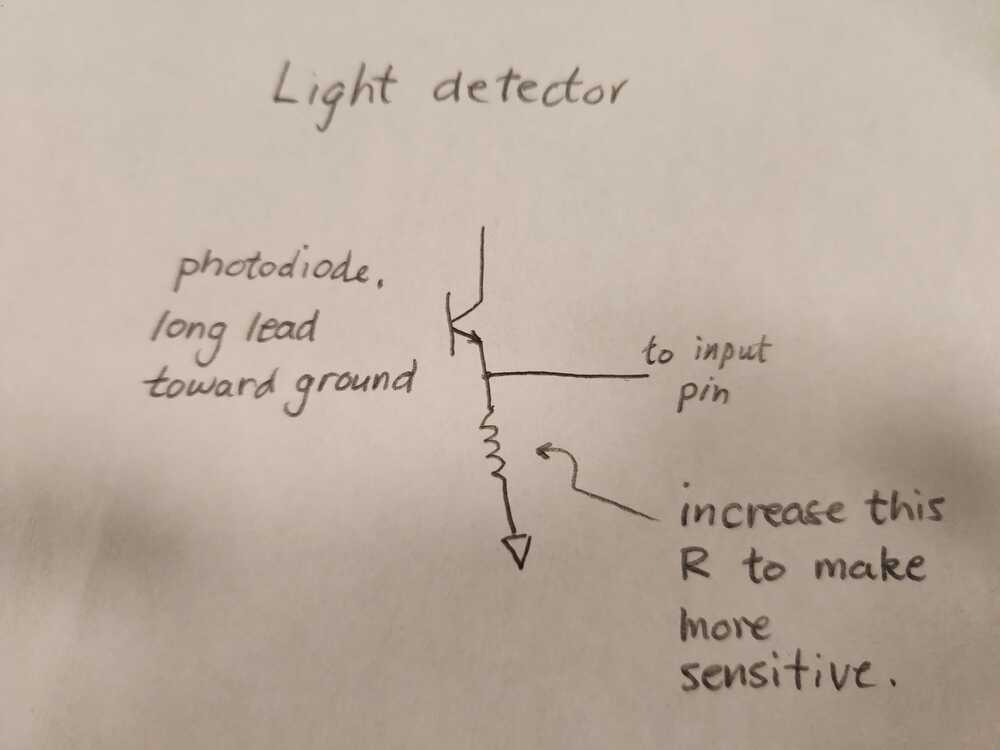 Light detector
photodiode.
long lead
toward ground
to input
pin
increase this
R to make
more
sensitive.